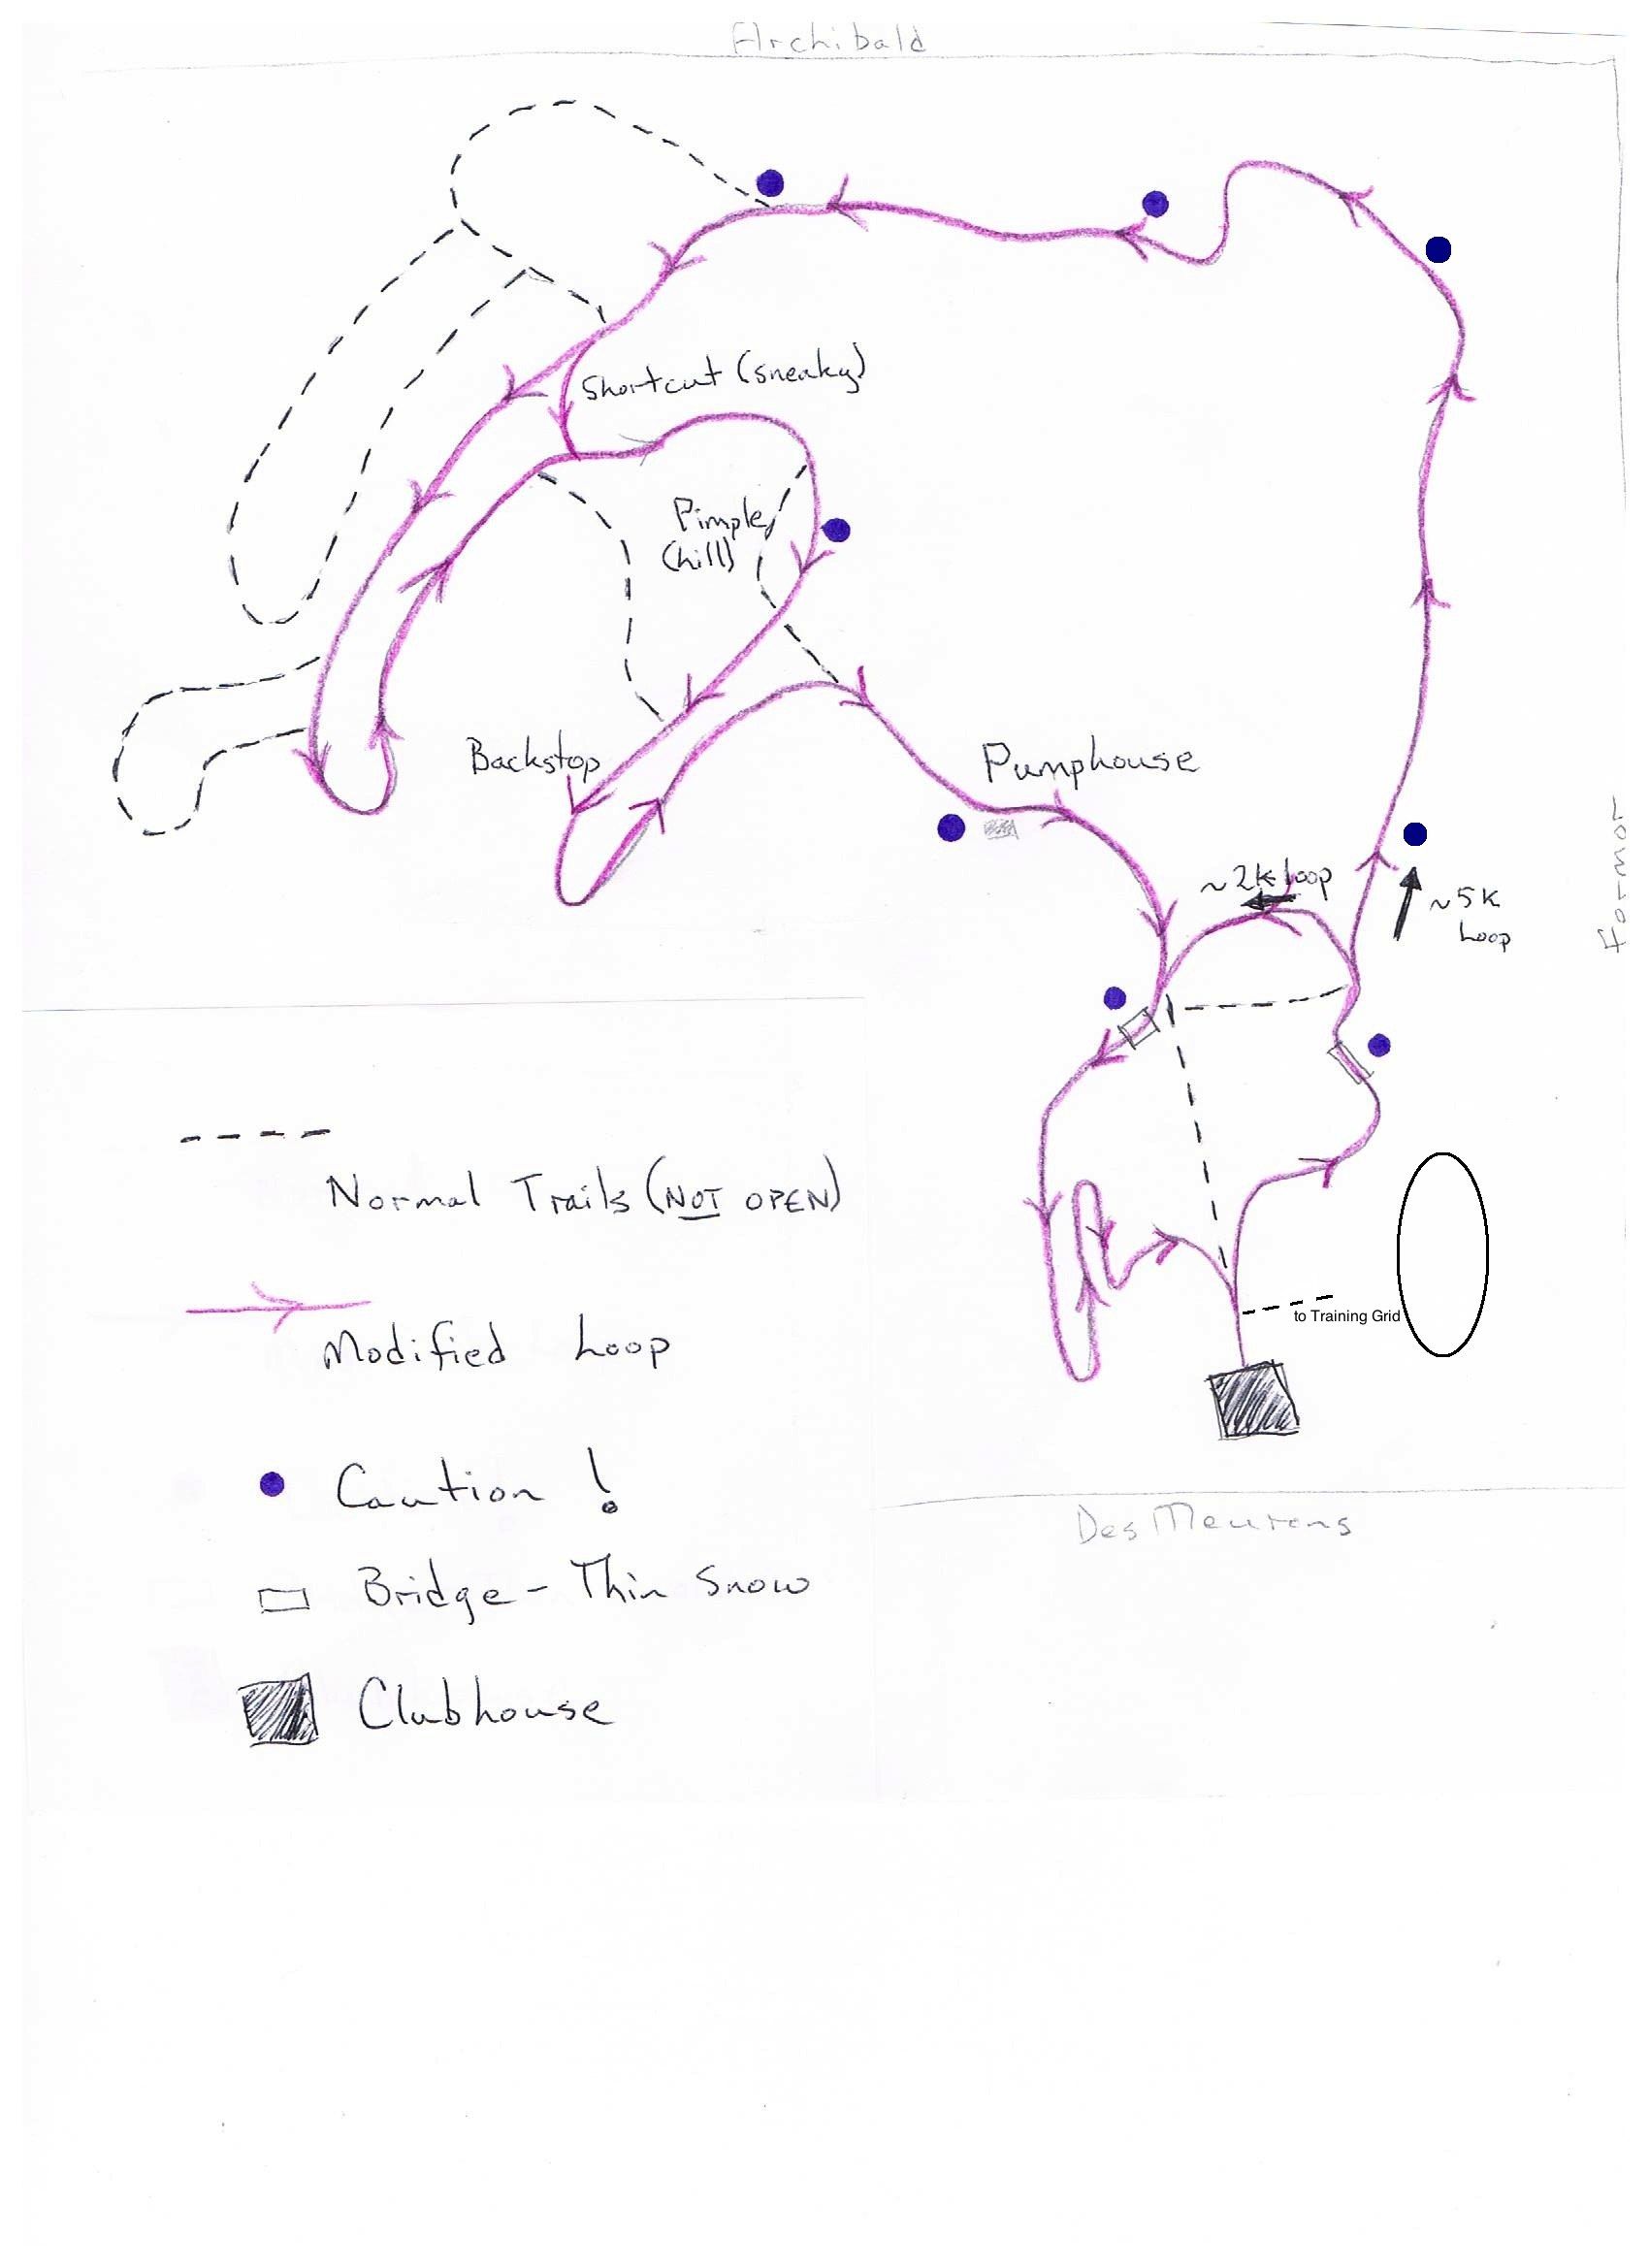 Archibald
Shortcut (sneaky)
Pimple
(hill)
Backstop
Pumphouse
~2k loop
~5k
Loop
Formor
to Training Grid
Des Meurons
Normal Trails (NOT OPEN)
Modified Loop
Caution !
Bridge - Thin Snow
Clubhouse